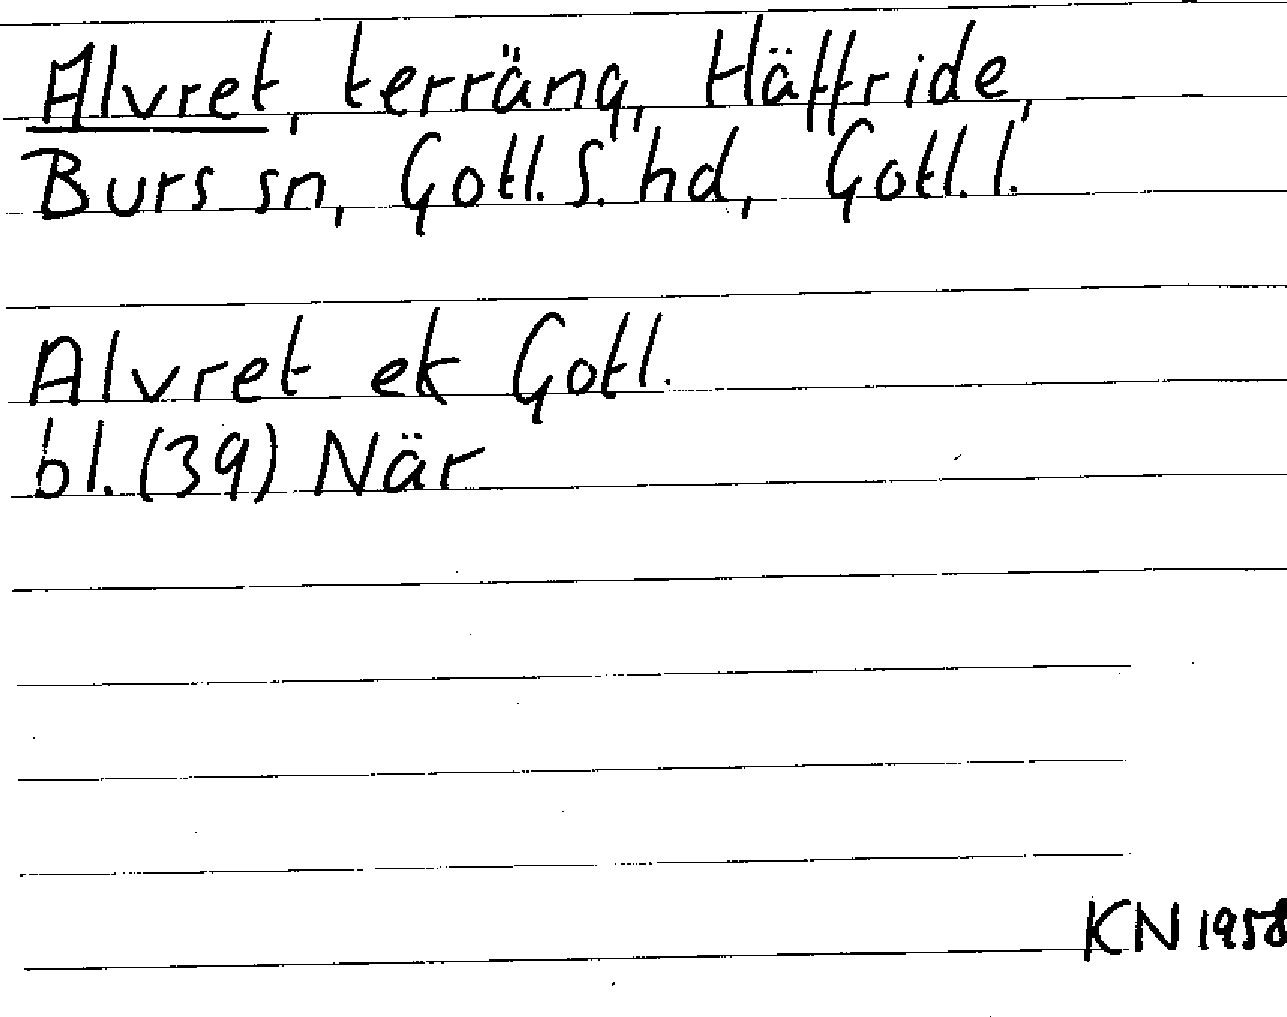 Alvret, terräng, Häffride,
Burs sn, Gotl. S. hd, Gotl. l.
Alvret ek Gotl.
bl. (39) När
KN 1958